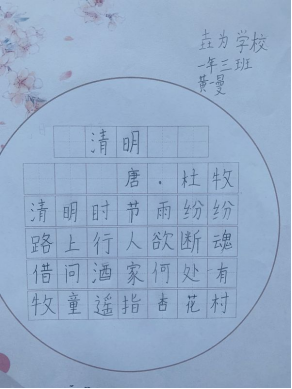 垚为学校
一年三班
黄一曼
清明
唐.杜牧
清明时节雨纷纷
路上行人欲断魂
借问酒家何处有
牧童遥指杏花村